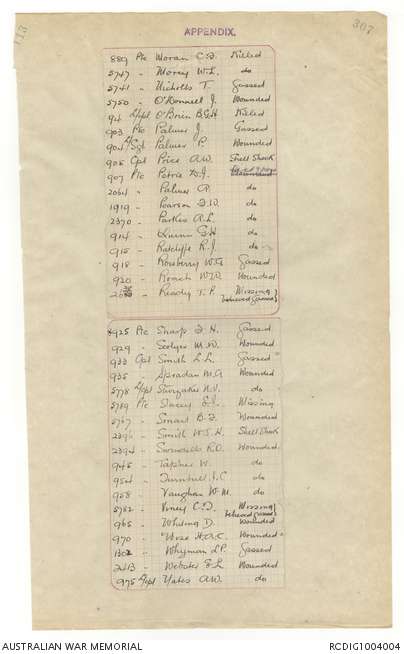 113
APPENDIX.
307
889 Pte Moran C.J. Killed
5747 " Morey W.L. do
5741 " Nicholls T. Gassed
5750 " O'Donnell J. Wounded
94 L/Cpl O'Brien B.G.H Killed
903 Pte Palmer J. Gassed
904 L/Sgt Palmer P. Wounded
905 Cpl Price A.W. Shell Shock
907 Pte Petrie D.J. Wounded
2064 " Palmer A. do
1919 " Pearson F.W. do
2370 " Parkes A.L. do
914 " Quinn G.H do
915 " Ratcliffe R.J. do
918 " Rosberry W.G Gassed
920 " Roach W.D. Wounded
" Ready T.P. Missing
believed gassed
925 Pte Sharp F.H. Gassed
929 " M.W. Wounded
933 Cpl Smith L.L. Gassed
935 " Spradau M.A Wounded
5778 L/Cpl N.V. do
5789 Pte Stacey E.J. Missing
5767 " Smart B.J. Wounded
2396 " Smith W.J.H. Shell Shock
2394 " R.O. Wounded
945 " W. do
954 " Turnbull J.C do
958 " Vaughan W.M. do
5782 " C.J. Missing
believed gassed
965 " Whiting D. Wounded
970 " Wise H.A.C. Wounded
1302 " Whyman L.P. Gassed
2413 " Webster E.L. Wounded
975 L/Cpl Yates A.W. do
AUSTRALIAN WAR MEMORIAL
RCDIG1004004